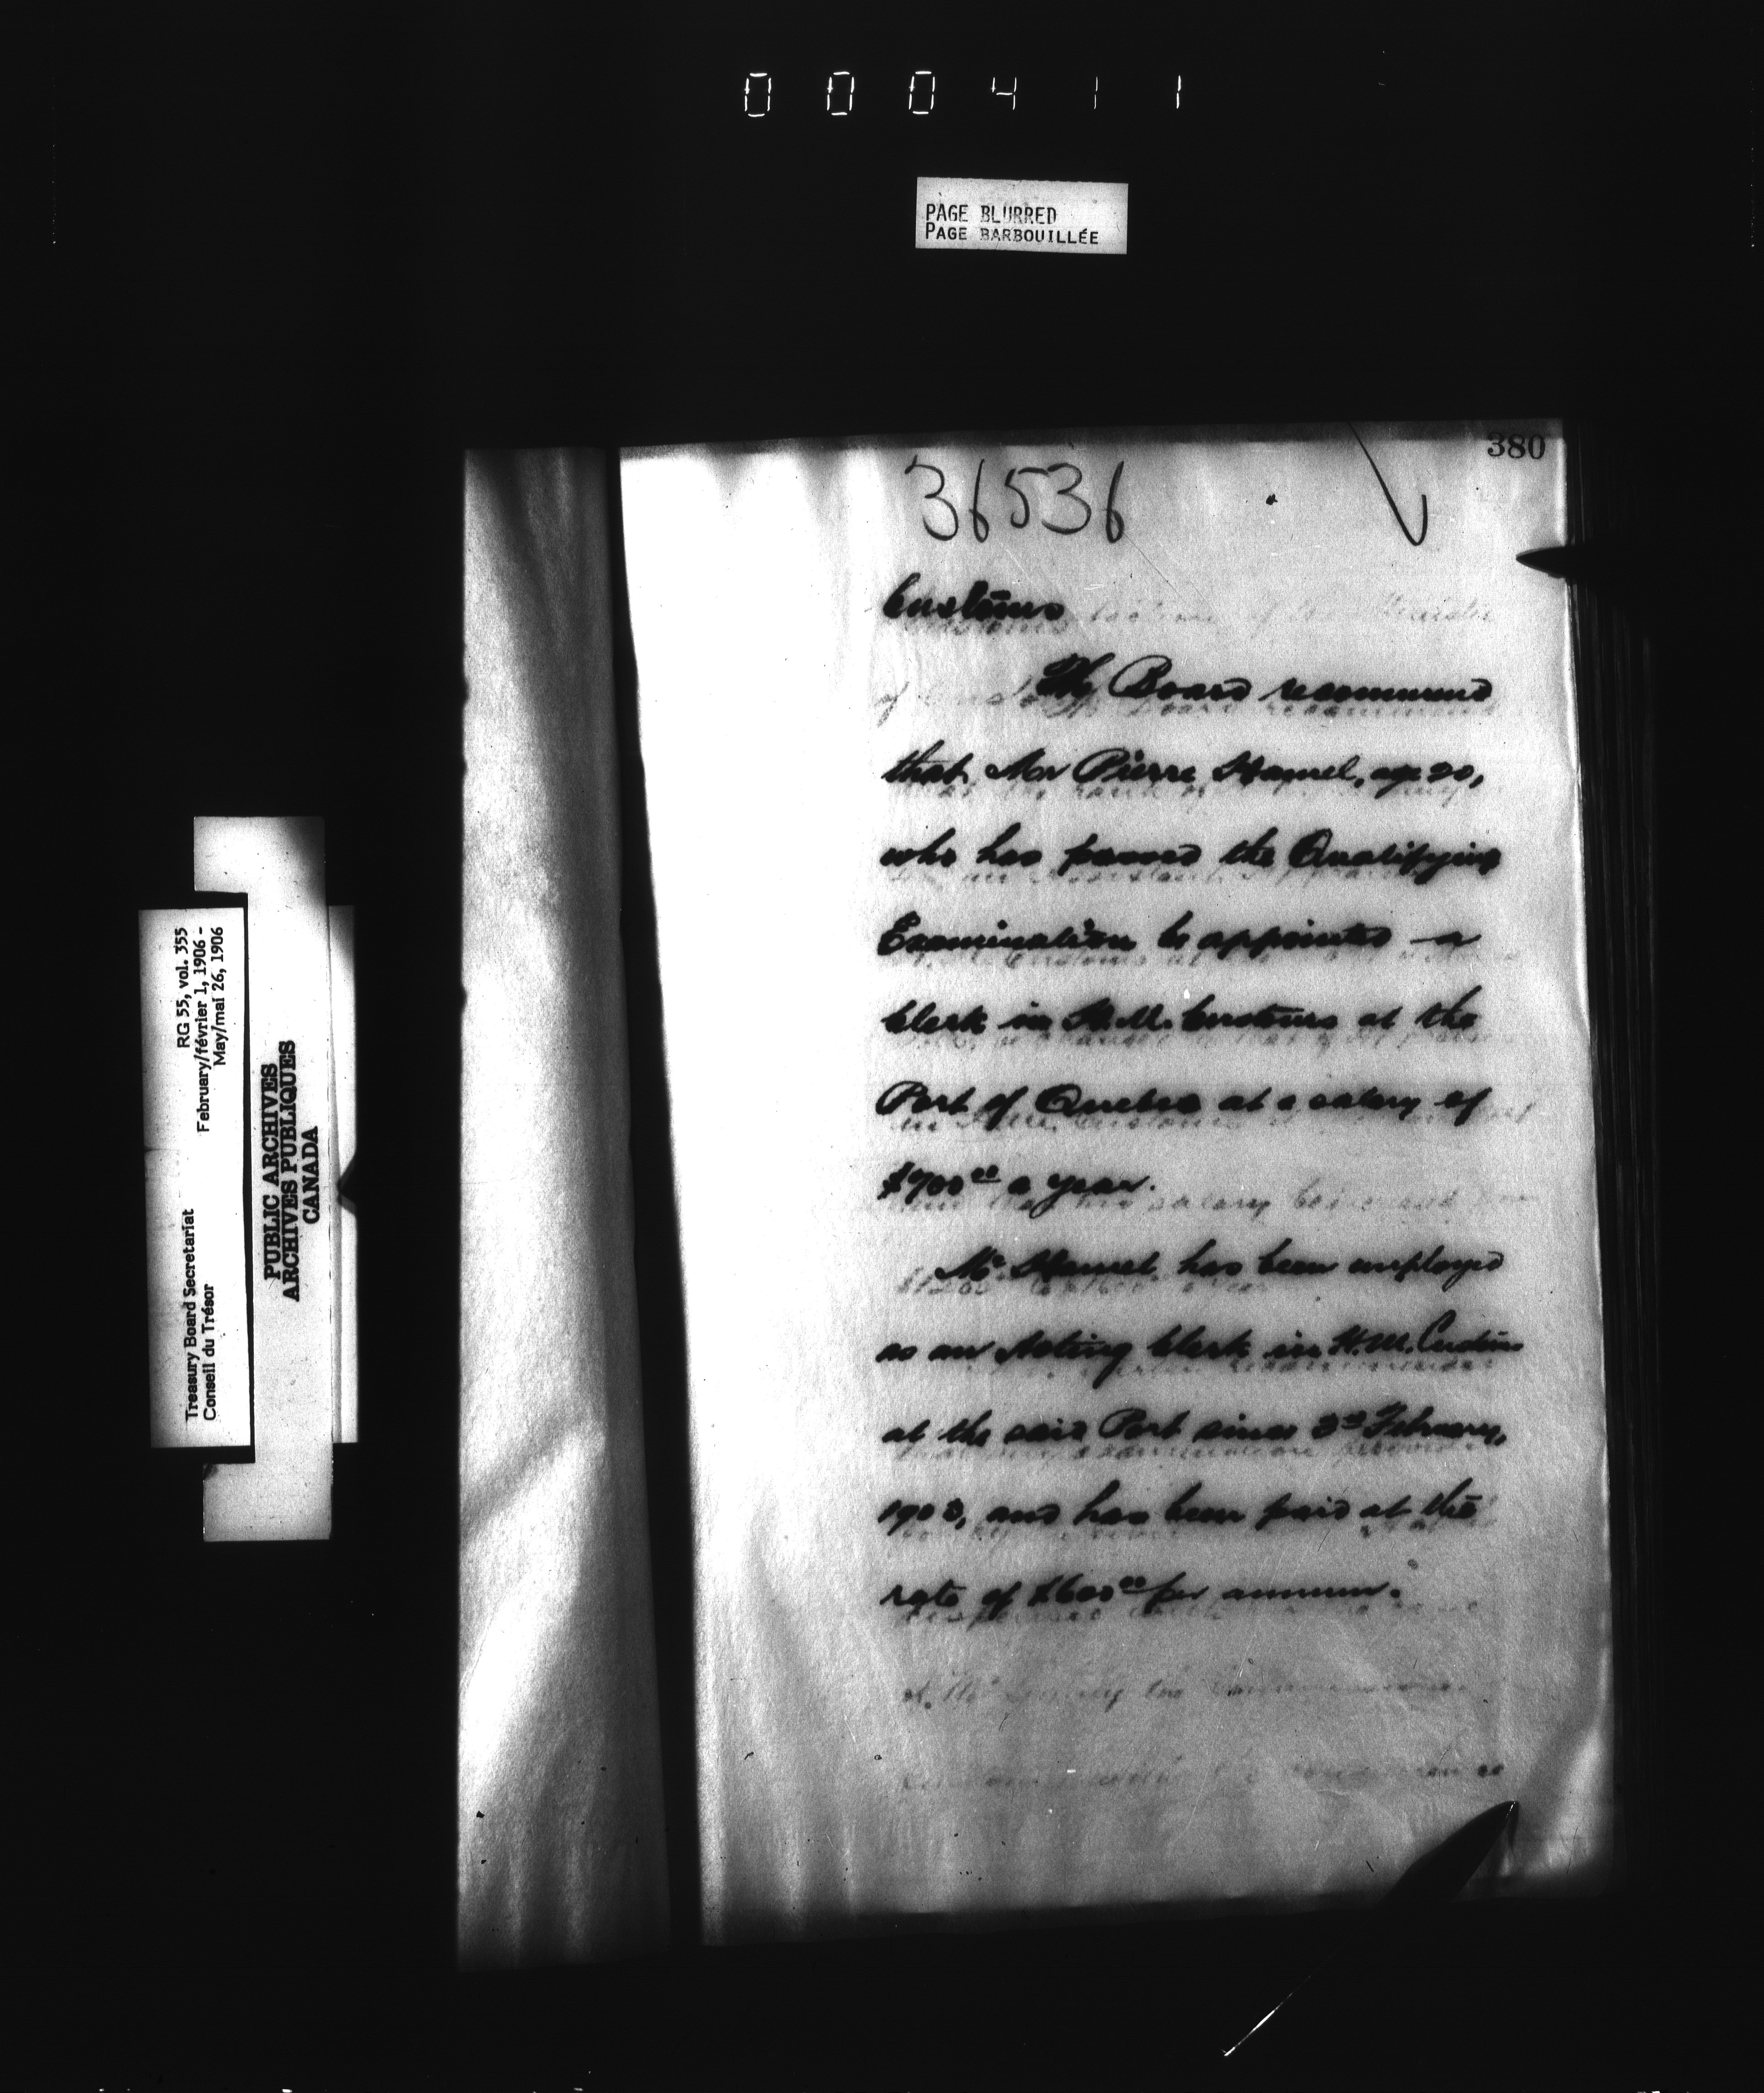 000411
PAGE BLURRED
PAGE BARBOUILLÉE
380
36536
Customs
The Board recommend
that Mr Pierre Hamel, age 20,
who has passed the Qualifying
Examination be appointed a
Clerk in H.M. Customs at the
Port of Quebec at a salary of
$700.00 a year.
Mr Hamel has been employed
as an Acting Clerk in H.M. Customs
at the said Port since 3rd February,
1903, and has been paid at the
rate of $600.00 per annum.
Treasury Board Secretariat
Conseil du Trésor
RG 55, vol. 355
February/février 1, 1906 -
May/mai 26, 1906
PUBLIC ARCHIVES
ARCHIVES PUBLIQUES
CANADA